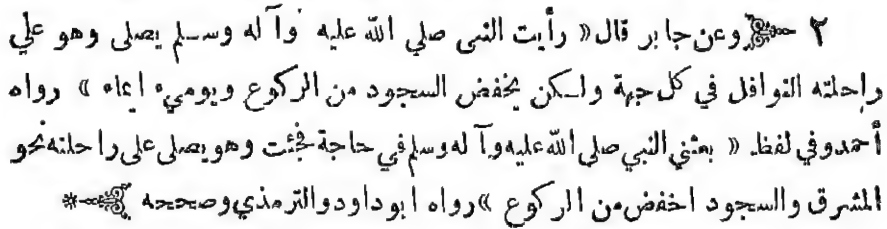 ٢ وعن جابر قال « رأيت النبى صلي الله عليه وآله وسلم يصلى وهو علي
راحلته النوافل في كل جهة ولكن يخفض السجود من الركوع ويوميء ايماء » رواه
أحمد وفي لفظ « بعثني النبي صلى الله عليه وآله وسلم في حاجة فجئت وهو يصلى على راحلته نحو
المشرق والسجود اخفض من الركوع » رواه ابو داود والترمذي وصححه *